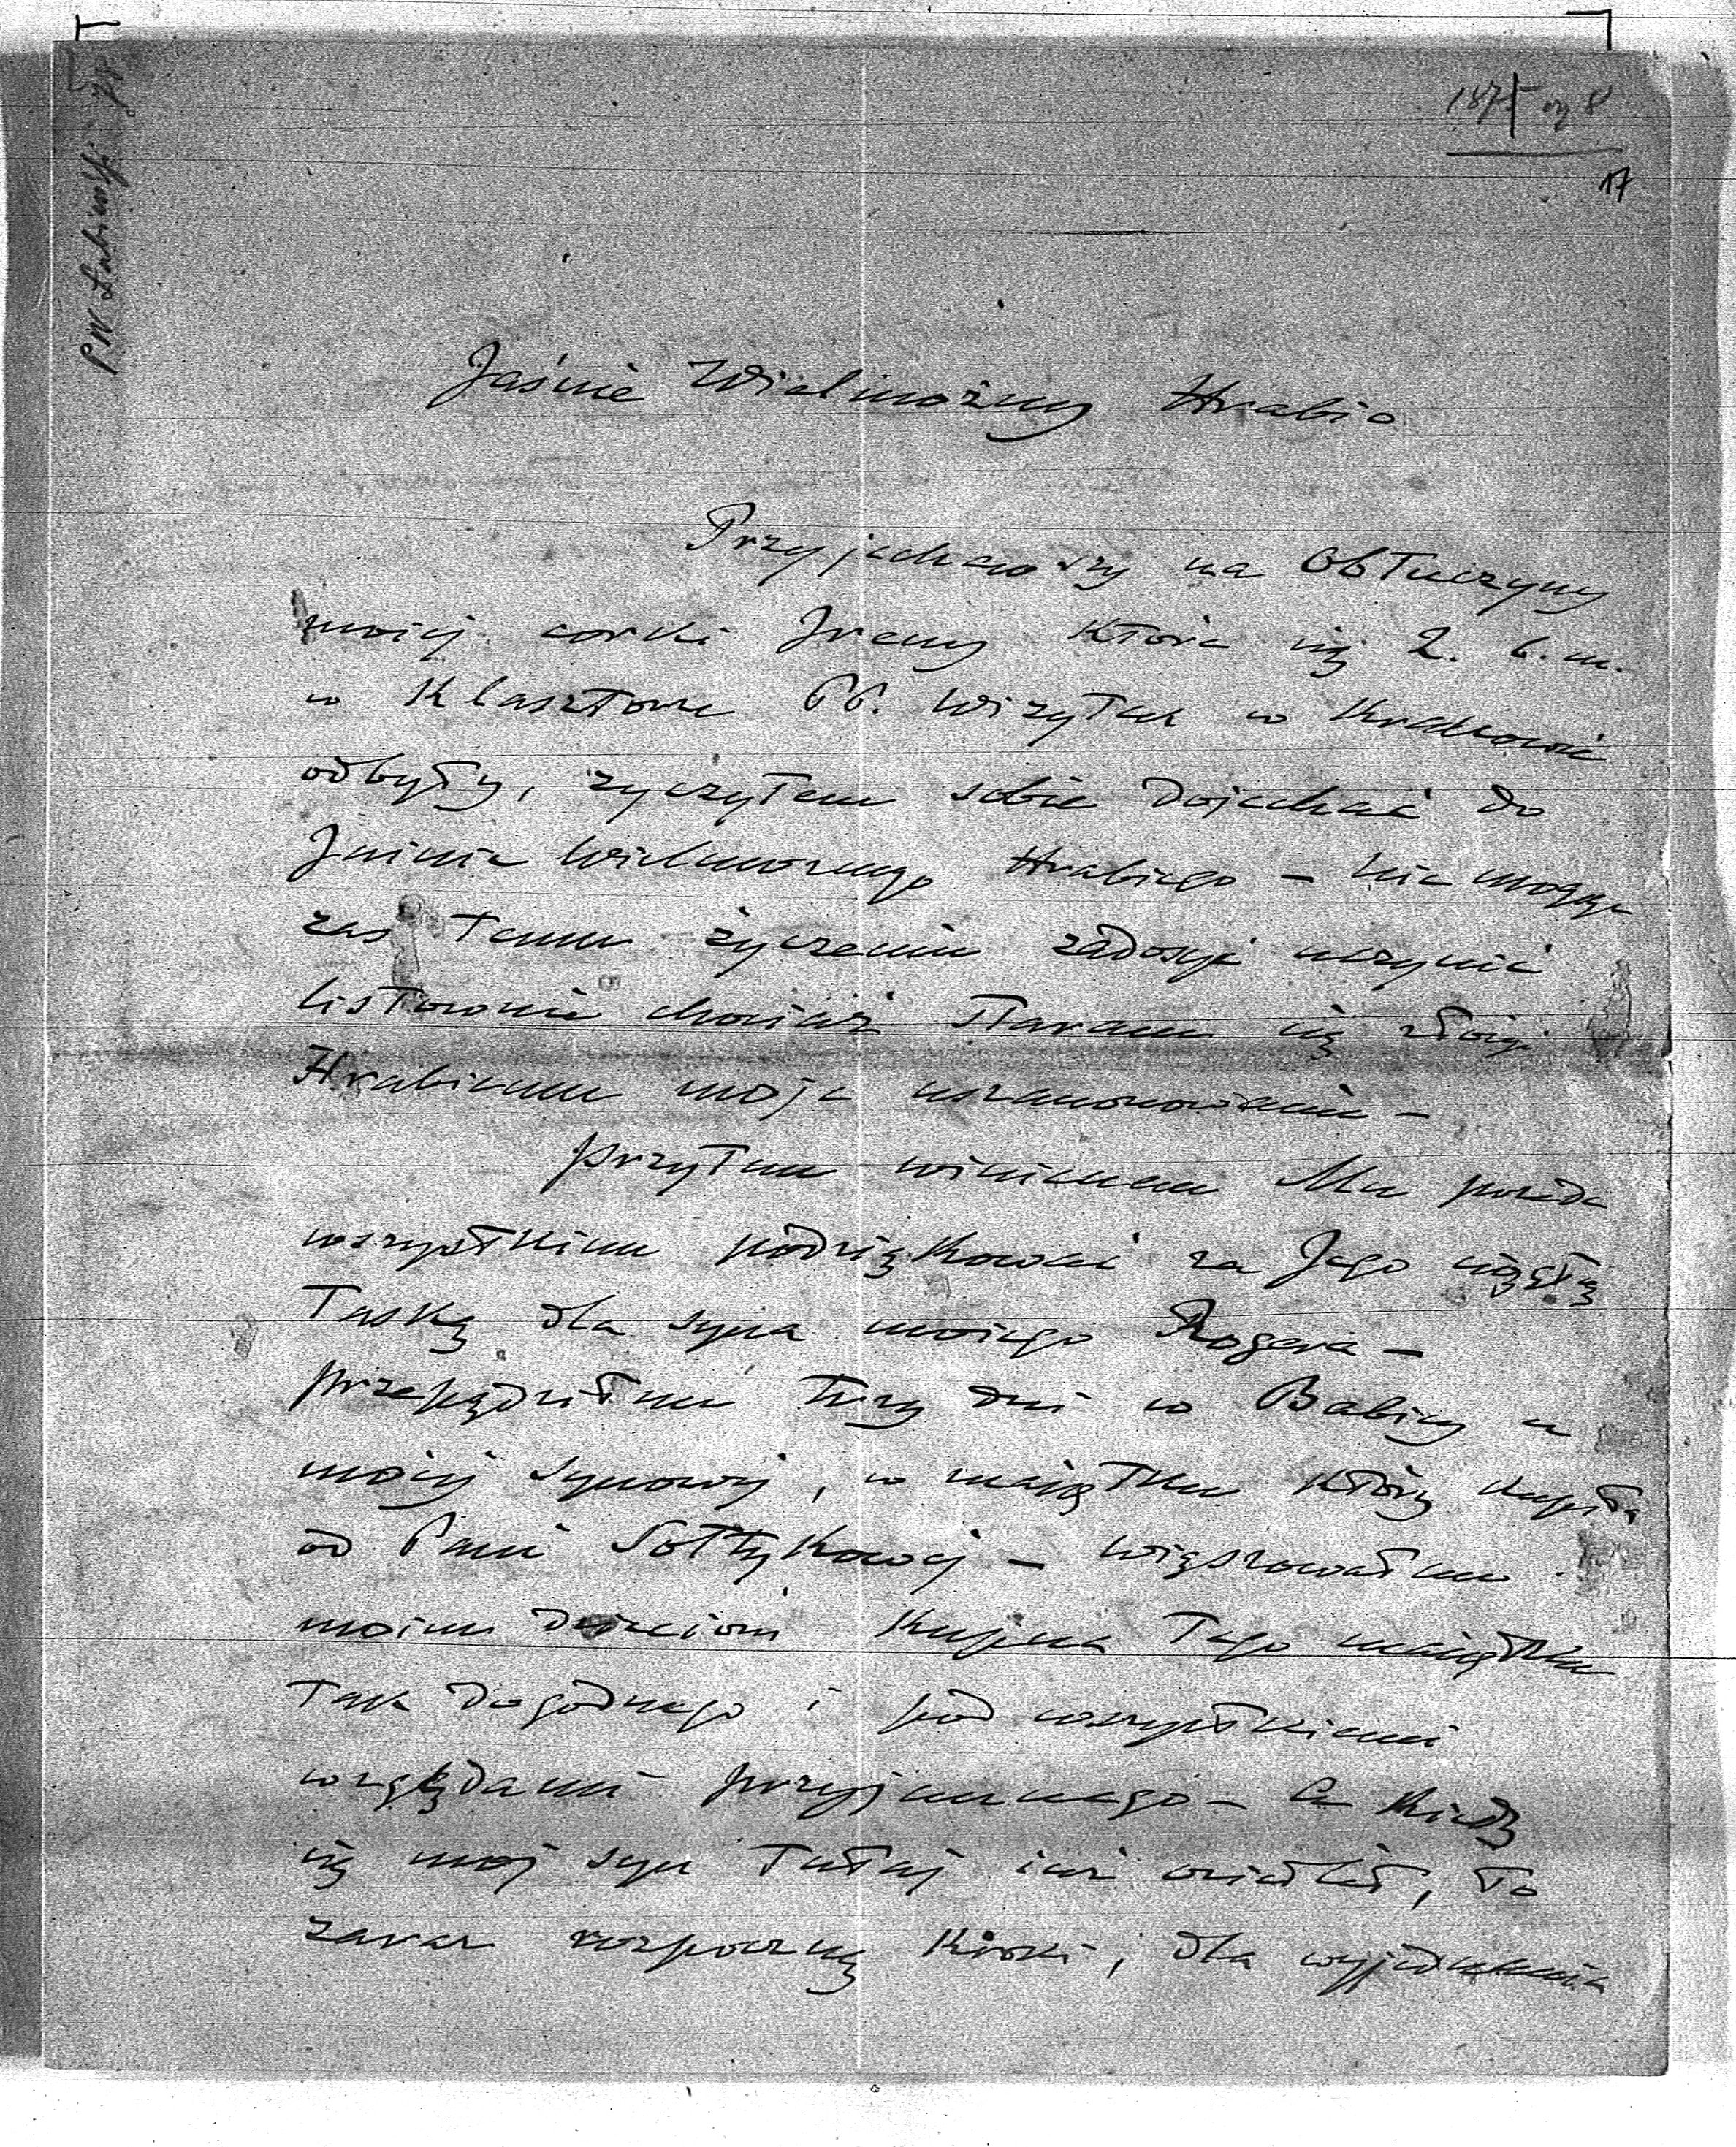 P. W. Łubieński
187
17
Jaśnie Wielmożny Hrabio
Przyjechawszy na Obłuczyny
mojej corki Ireny ktore się 2. b. m.
w Klasztorze PP. Wizytek w Krakowie
odbyły, życzyłem sobie dojechać do
Jaśnie Wielmożnego Hrabiego – nie mogąc
zas temu życzeniu zadosyć uczynić
listownie chociaż staram się złożyć
Hrabiemu moje uszanowanie –
przytem winienem Mu przede
wszystkiem podziękować za Jego
łaskę dla syna mojego Rogera –
przepędziłem trzy dni w Babicy u
mojej synowej, w majątku który kupiła
od Pani Sołtykowej – winszowałem
moim dzieciom kupna tego majątku
tak dogodnego i pod wszystkiemi
względami przyjemnego – a kiedy
się moj syn tutaj już osiedlił, to
zaraz rozpoczną kroki, dla wyjednania